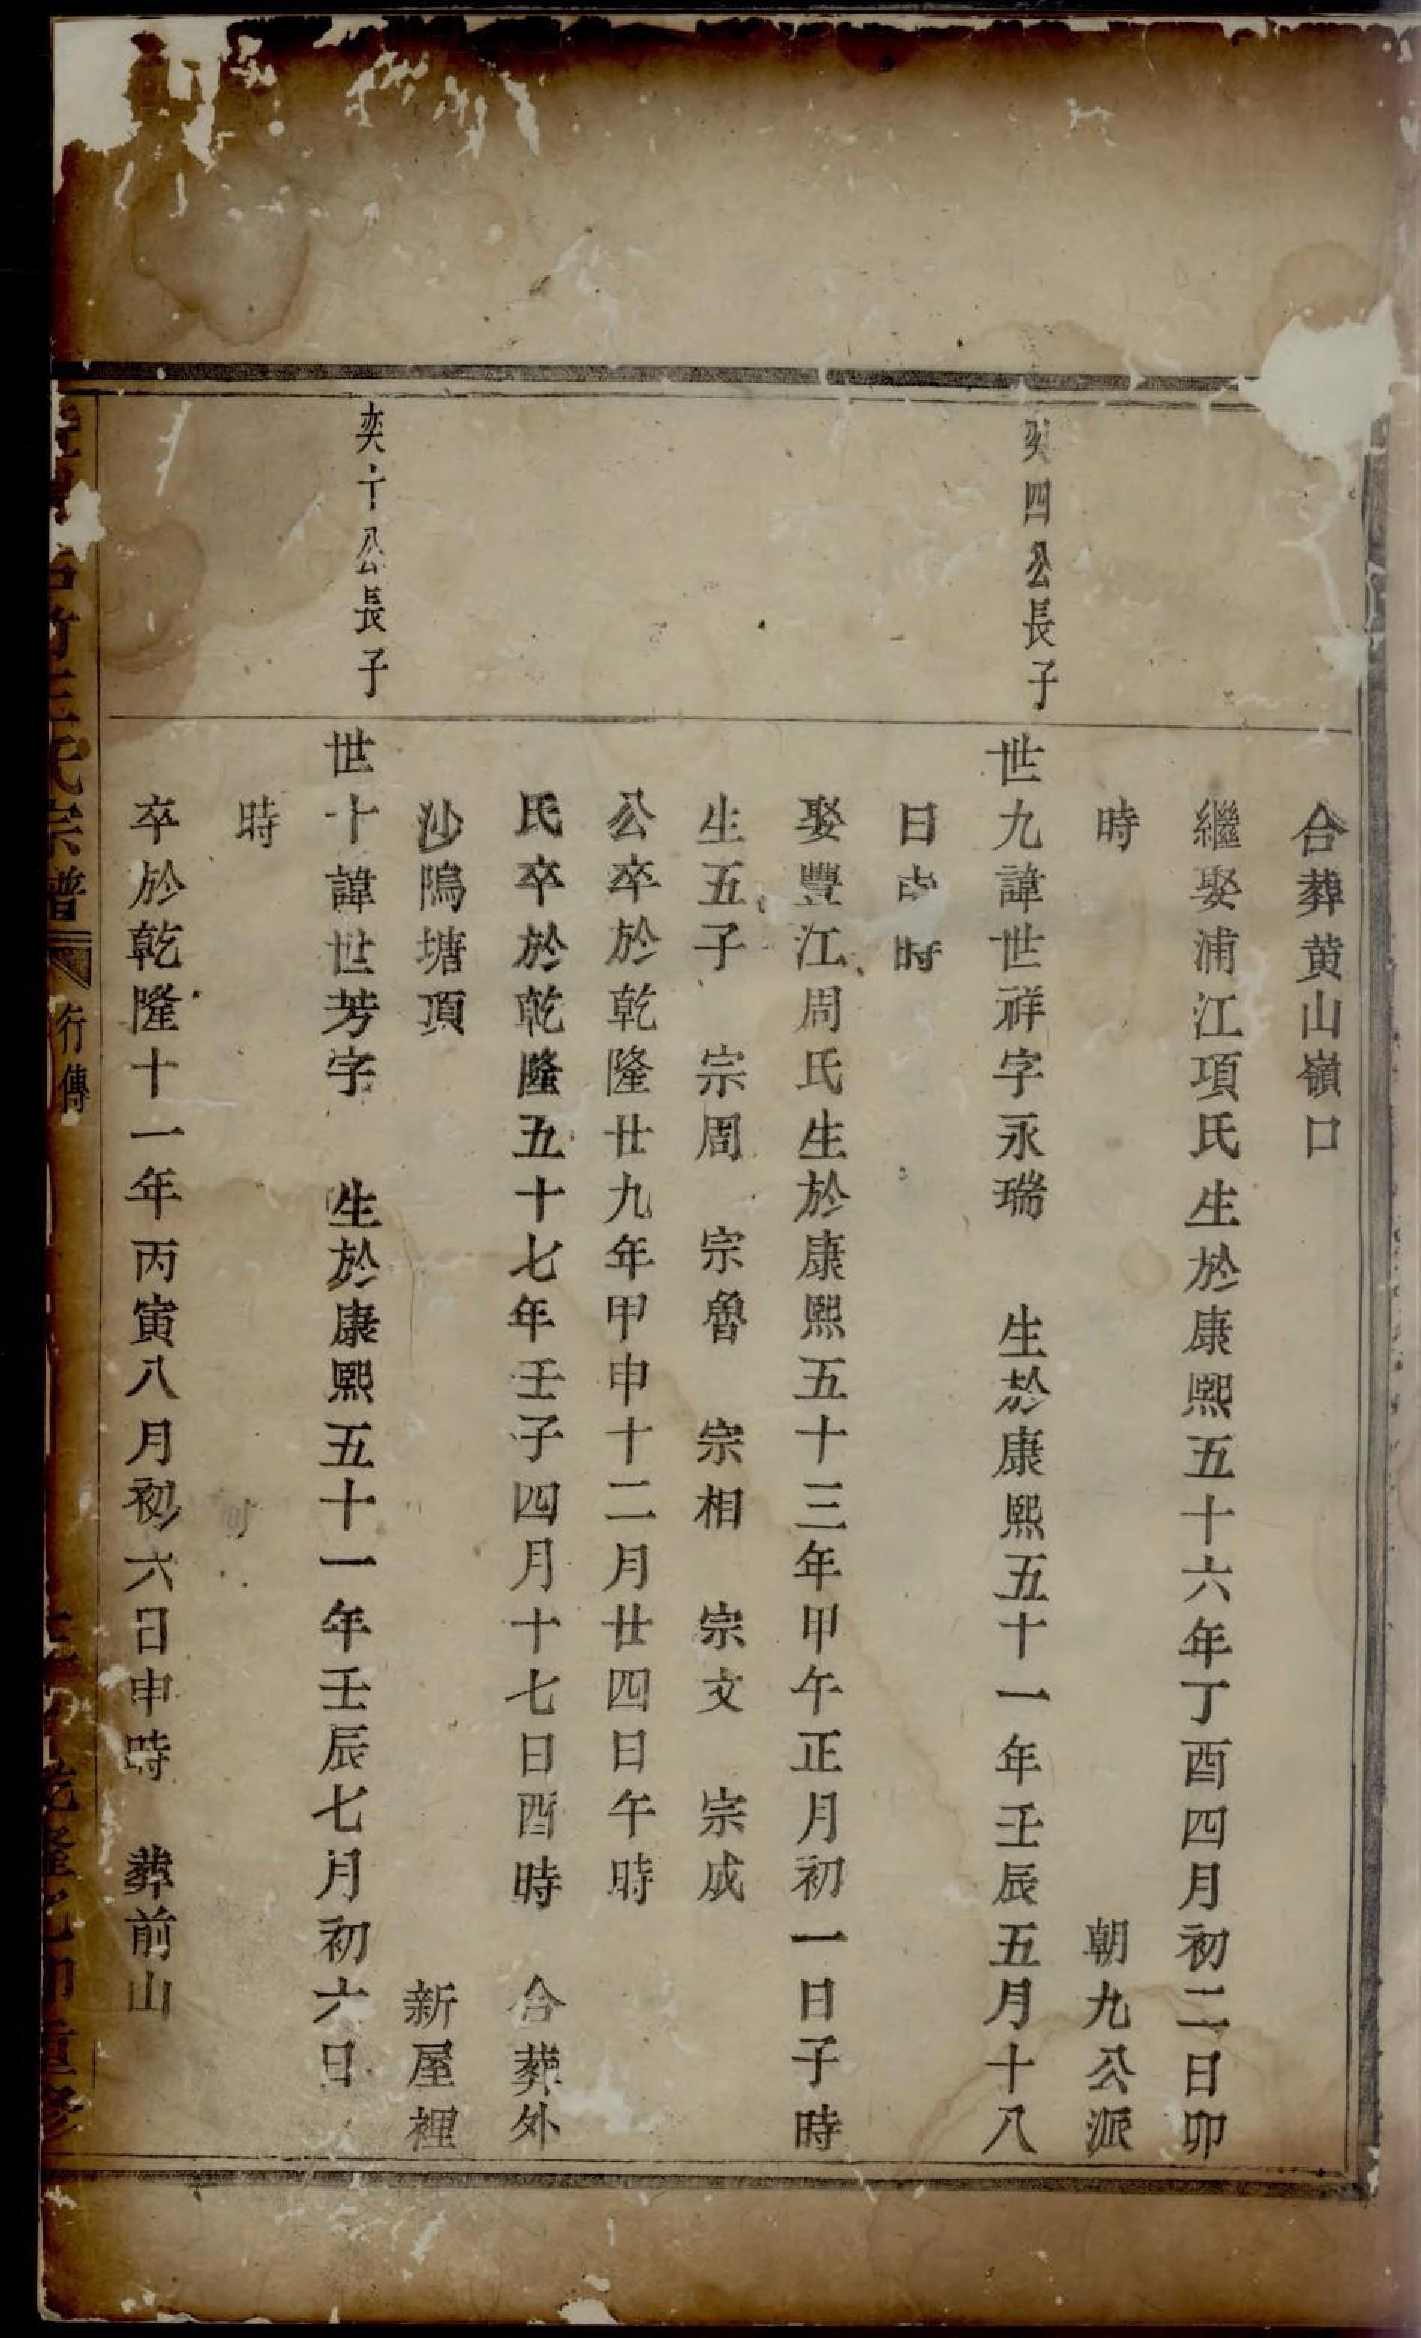 合葬黄山嶺口
繼娶浦江項氏生於康熙五十六年丁酉四月初二日卯
時 朝九公派
奕四公長子
世九諱世祥字永瑞 生於康熙五十一年壬辰五月十八
日 時
娶豐江周氏生於康熙五十三年甲午正月初一日子時
生五子 宗周 宗魯 宗相 宗文 宗成
公卒於乾隆廿九年甲申十二月廿四日午時
氏卒於乾隆五十七年壬子四月十七日酉時 合葬外
沙隖塘項 新屋裡
奕十公長子
世十諱世芳字 生於康熙五十一年壬辰七月初六日
時
卒於乾隆十一年丙寅八月初六日申時 葬前山
竹 氏宗譜 行傳 乾隆乙卯重修